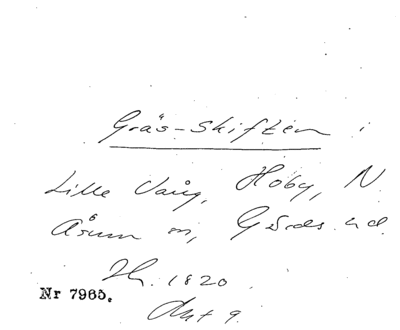 Gräs-Skiften i
Lille Vång, Hoby, N
Åsum m, Gärds hd.
1820
Nr 7965.
Akt 9.